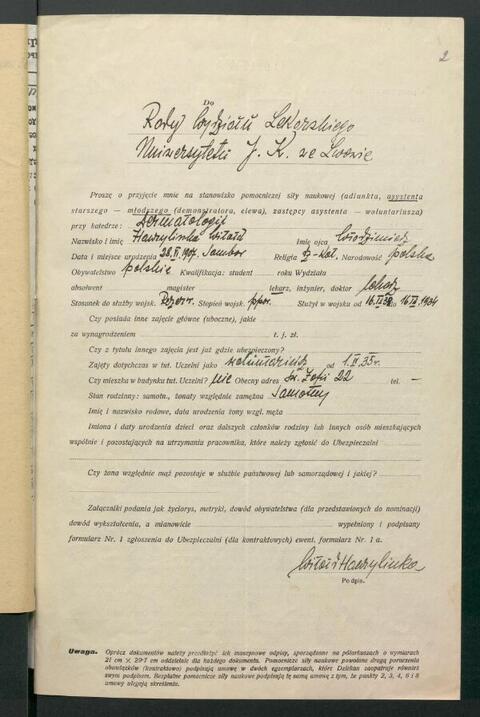 2
Do
Rady Wydziału Lekarskiego
Uniwersytetu J. K. we Lwowie
Proszę o przyjęcie mnie na stanowisko pomocniczej siły naukowej (adiunkta, asystenta
starszego — młodszego (demonstratora, elewa), zastępcy asystenta — woluntariusza)
przy katedrze: Dermatologii
Nazwisko i imię Hawrylinka Witold imię ojca Włodzimierz
Data i miejsce urodzenia 28.II.1907. Sambor Religia rz-kat. Narodowość polska
Obywatelstwo polskie Kwalifikacja: student roku Wydziału
absolwent magister lekarz, inżynier, doktor lekarz
Stosunek do służby wojsk. Rezerw. Stopień wojsk. ppor. Służył w wojsku od 16.II do 16.II 1934
Czy posiada inne zajęcie główne (uboczne), jakie
za wynagrodzeniem t. j. zł.
Czy z tytułu innego zajęcia jest już gdzie ubezpieczony?
Zajęty dotychczas w tut. Uczelni jako od 1.II.35r.
Czy mieszka w budynku tut. Uczelni? nie Obecny adres Św. Zofii 22 tel. —
Stan rodzinny: samotn., żonaty względnie zamężna Samotny
Imię i nazwisko rodowe, data urodzenia żony wzgl. męża
Imiona i daty urodzenia dzieci oraz dalszych członków rodziny lub innych osób mieszkających
wspólnie i pozostających na utrzymaniu pracownika, które należy zgłosić do Ubezpieczalni
Czy żona względnie mąż pozostaje w służbie państwowej lub samorządowej i jakiej?
Załączniki podania jak życiorys, metryki, dowód obywatelstwa (dla przedstawionych do nominacji)
dowód wykształcenia, a mianowicie wypełniony i podpisany
formularz Nr. 1 zgłoszenia do Ubezpieczalni (dla kontraktowych) ewent. formularz Nr. 1 a.
Witold Hawrylinka
Podpis.
Uwaga. Oprócz dokumentów należy przedłożyć ich maszynowe odpisy, sporządzone na półarkuszach o wymiarach
21 cm × 29·7 cm oddzielnie dla każdego dokumentu. Pomocnicze siły naukowe powołane drogą poruczenia
obowiązków (kontraktowo) podpisują umowę w dwóch egzemplarzach, które Dziekan zaopatruje również
swym podpisem. Bezpłatne pomocnicze siły naukowe podpisują tę samą umowę z tym, że punkty 2, 3, 4, 6 i 8
umowy ulegają skreśleniu.